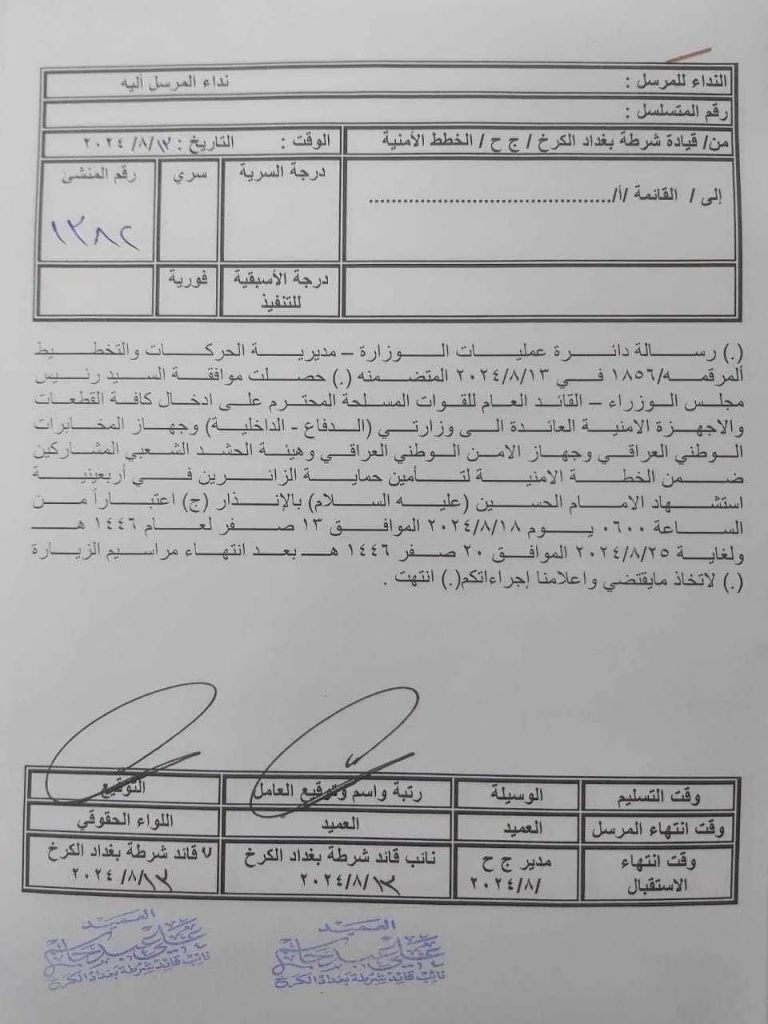 النداء للمرسل : نداء المرسل أليه
رقم المتسلسل :
من/ قيادة شرطة بغداد الكرخ / ج ح / الخطط الأمنية الوقت : التاريخ : ١٣/ ٨/ ٢٠٢٤
إلى / القائمة /أ/........................................ درجة السرية سري رقم المنشئ
١٣٨٢
درجة الأسبقية للتنفيذ فورية
(.) رسالة دائرة عمليات الوزارة – مديرية الحركات والتخطيط
المرقمه/١٨٥٦ في ٢٠٢٤/٨/١٣ المتضمنه (.) حصلت موافقة السيد رئيس
مجلس الوزراء – القائد العام للقوات المسلحة المحترم على ادخال كافة القطعات
والاجهزة الامنية العائدة الى وزارتي (الدفاع - الداخلية) وجهاز المخابرات
الوطني العراقي وجهاز الامن الوطني العراقي وهيئة الحشد الشعبي المشاركين
ضمن الخطة الامنية لتأمين حماية الزائرين في أربعينية
استشهاد الامام الحسين (عليه السلام) بالإنذار (ج) اعتباراً من
الساعة ٠٦٠٠ يوم ٢٠٢٤/٨/١٨ الموافق ١٣ صفر لعام ١٤٤٦ هـ
ولغاية ٢٠٢٤/٨/٢٥ الموافق ٢٠ صفر ١٤٤٦ هـ بعد انتهاء مراسيم الزيارة
(.) لاتخاذ مايقتضي واعلامنا إجراءاتكم(.) انتهت .
وقت التسليم الوسيلة رتبة واسم وتوقيع العامل التوقيع
وقت انتهاء المرسل العميد العميد اللواء الحقوقي
وقت انتهاء الاستقبال مدير ج ح نائب قائد شرطة بغداد الكرخ قائد شرطة بغداد الكرخ
/٢٠٢٤/٨ ٢٠٢٤/٨/١٣ ٢٠٢٤ /٨/١٣
العميد
نائب قائد شرطة بغداد الكرخ
العميد
نائب قائد شرطة بغداد الكرخ